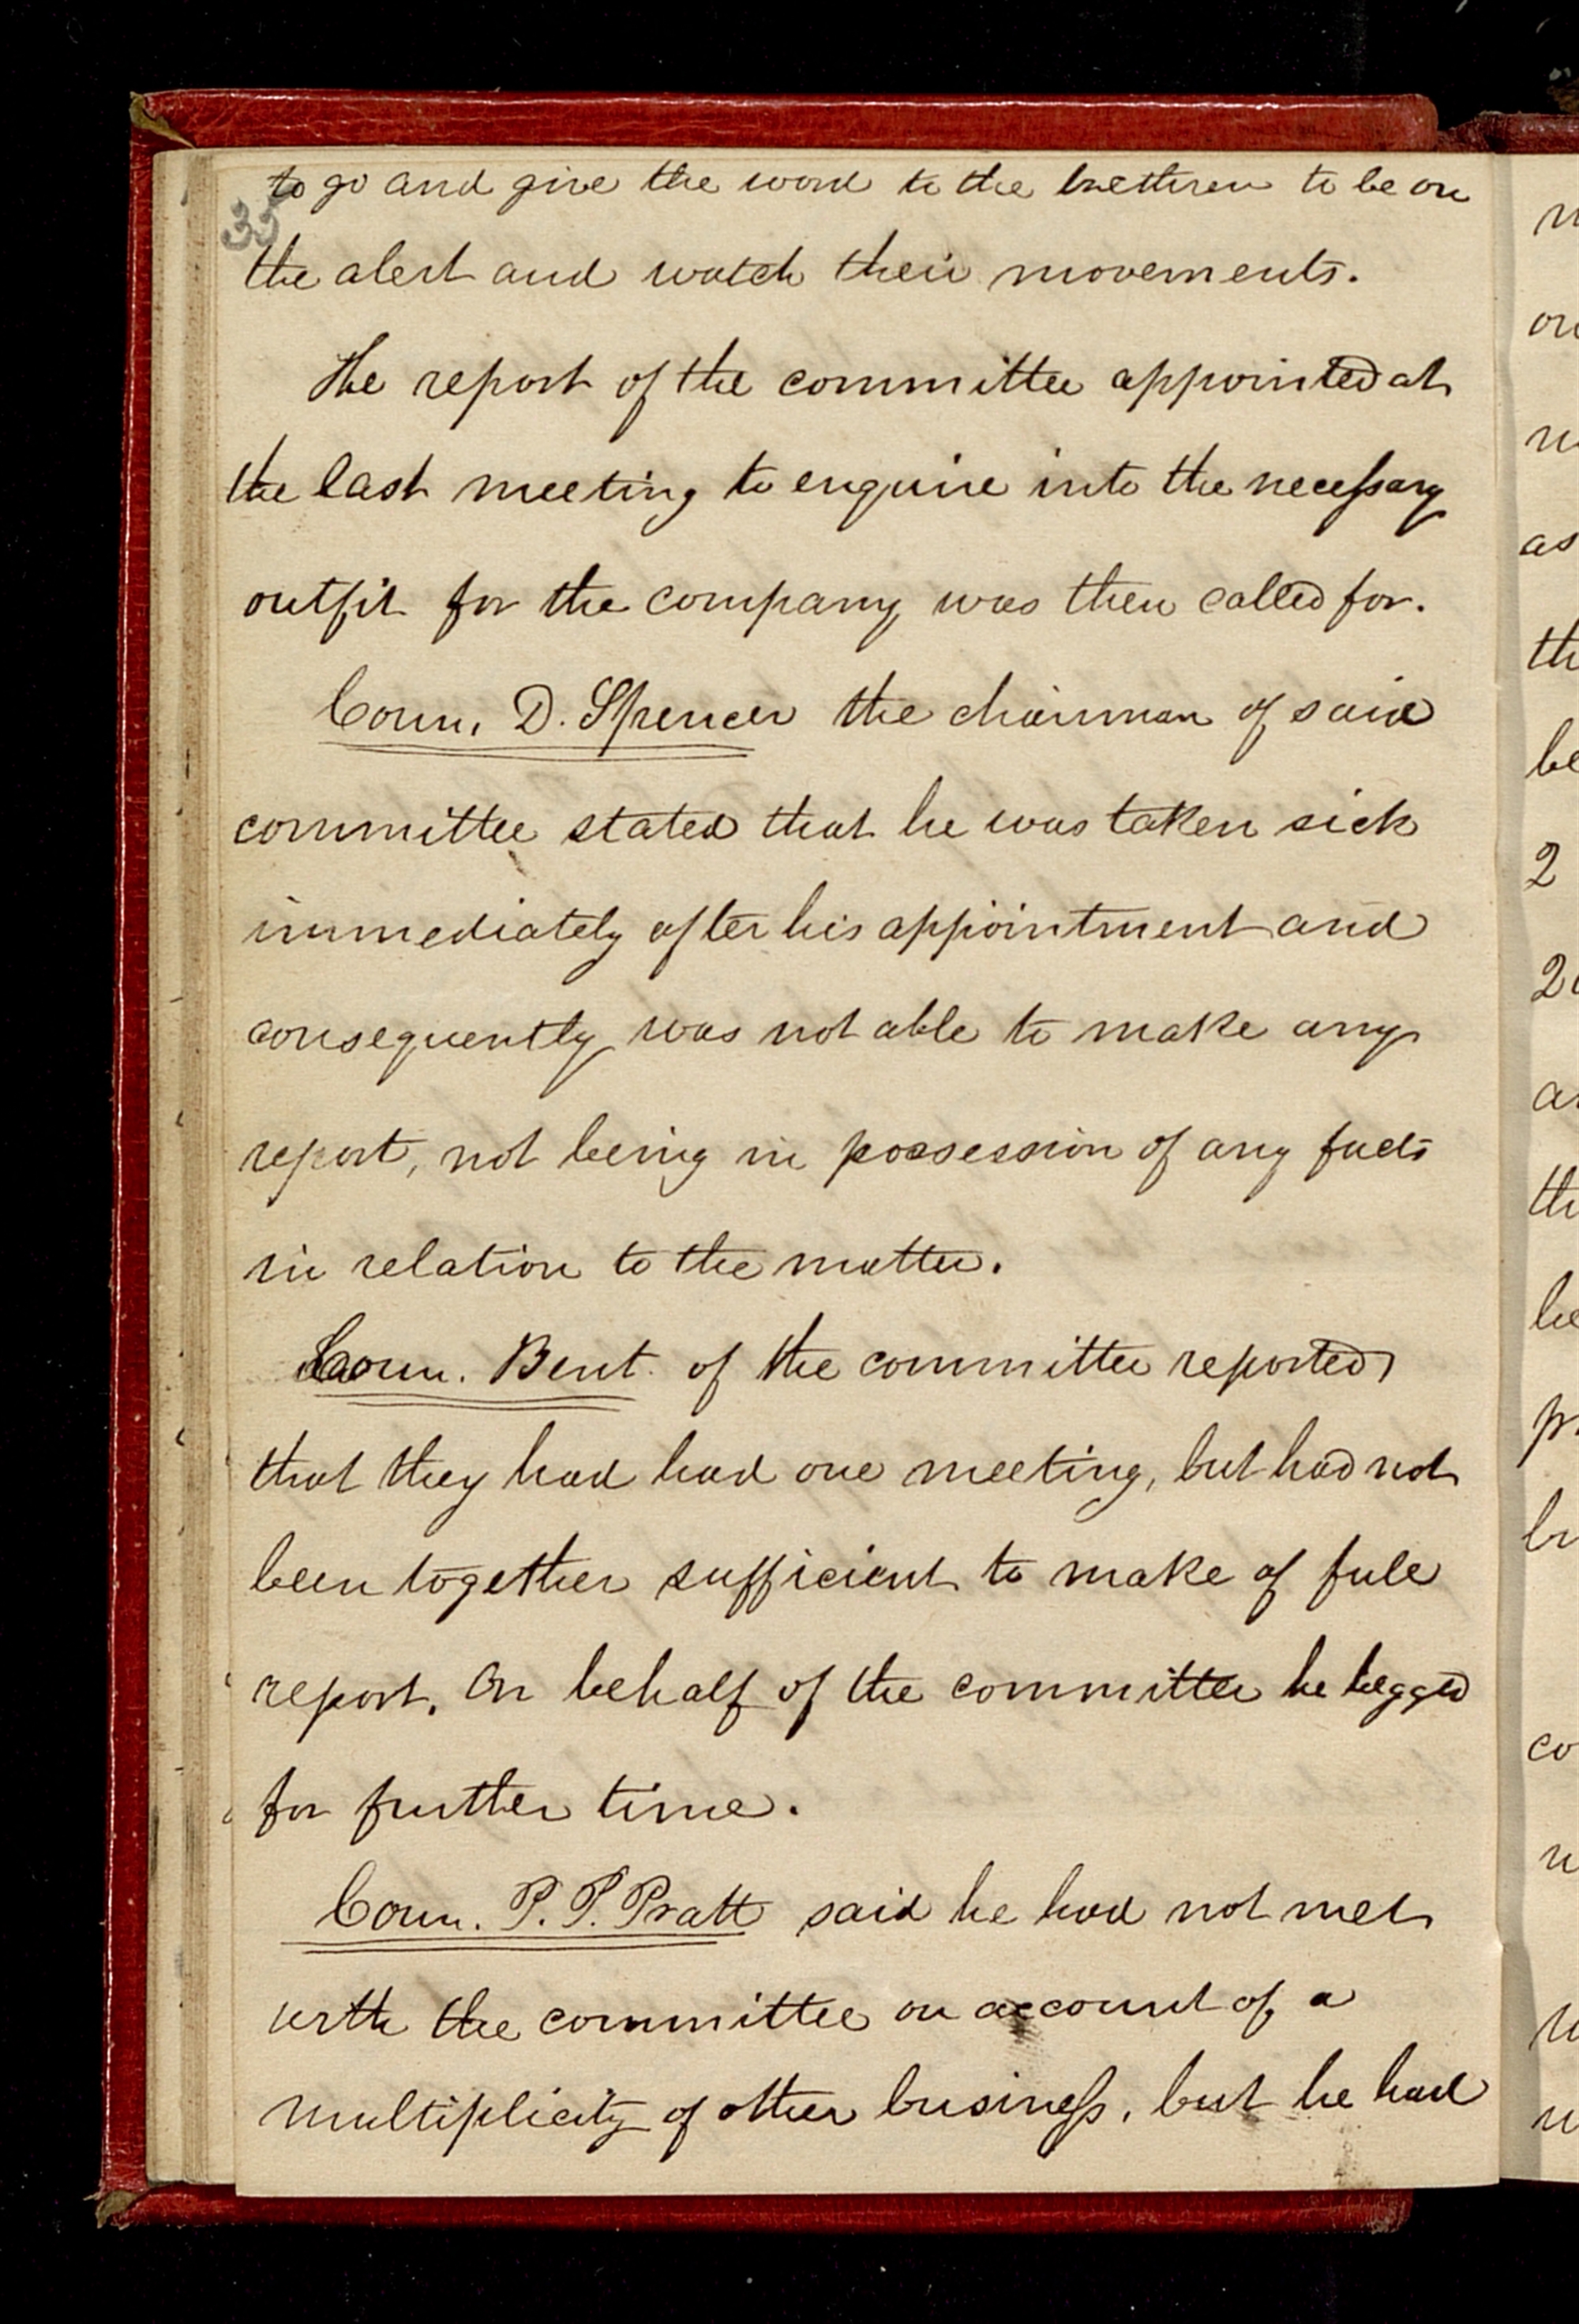 to go and give the word to the brethren to be on
35
the alert and watch their movements.
The report of the committee appointed at
the last meeting to enquire into the necessary
outfit for the company was then called for.
Coun. D. Spencer the chairman of said
committee stated that he was taken sick
immediately after his appointment and
consequently was not able to make any
report, not being in possession of any facts
in relation to the matter.
Coun. Bent of the committee reported
that they had had one meeting, but had not
been together sufficient to make of full
report. On behalf of the committee he begged
for further time.
Coun. P. P. Pratt said he had not met
with the committee on account of a
multiplicity of other business, but he had